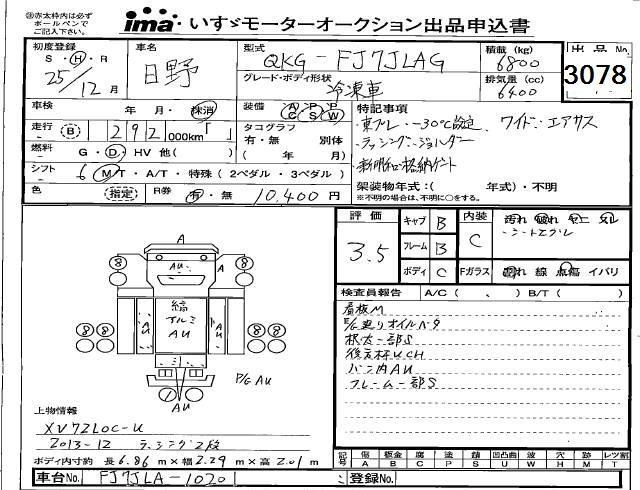 ※赤太枠内は必ず
ボールペンで
ご記入ください。
ima いすゞモーターオークション出品申込書
初度登録
S・H・R
25/12月
車名
日野
型式
QKG-FJ7JLAG
グレード・ボディ形状
冷凍車
積載 (kg)
6800
排気量 (cc)
6400
出品No.
3078
車検
年 月・抹消
装備
A/C P/S P/W
走行
B 292 000km「 」
タコグラフ
有・無 別体
( 年 月)
燃料
G・D・HV 他( )
シフト
6 M/T・A/T・特殊 (2ペダル・3ペダル)
色
(指定)
R券
有・無 10,400円
特記事項
・東プレ -30℃設定、ワイド・エアサス
・ラッシング・ジョルダー
・新明和格納ゲート
架装物年式:( 年式)・不明
※不明の場合は、不明に○をする。
評価
3.5
キャブ B
フレーム B
ボディ C
内装
C
汚れ 破れ
・シートスグレ
Fガラス
汚れ 線 点傷 イバリ
検査員報告 A/C( 、 ) B/T( )
看板M
根太一部S
後方杯UCH
バン内AU
フレーム一部S
A
AU
A
8
8
8 8
8 8
AU
縞
アルミ
AU
AU
ミ
1
AU
P/G AU
上物情報
XV72LOC-U
2013-12 ラッシング2段
ボディ内寸約 長6.86m×幅2.29m×高2.01m
記号 傷 A 板金 B 腐 C 塗 P 錆 S 凹凸曲 U 波 W 穴 H 跡 M レツ割 T
車台No. FJ7JLA-1020
登録No.